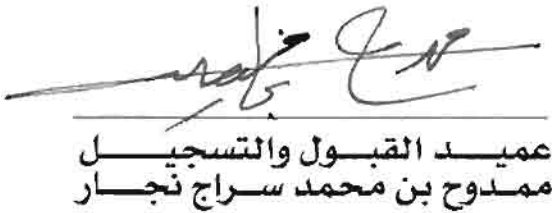 عميد القبول والتسجيل
ممدوح بن محمد سراج نجار